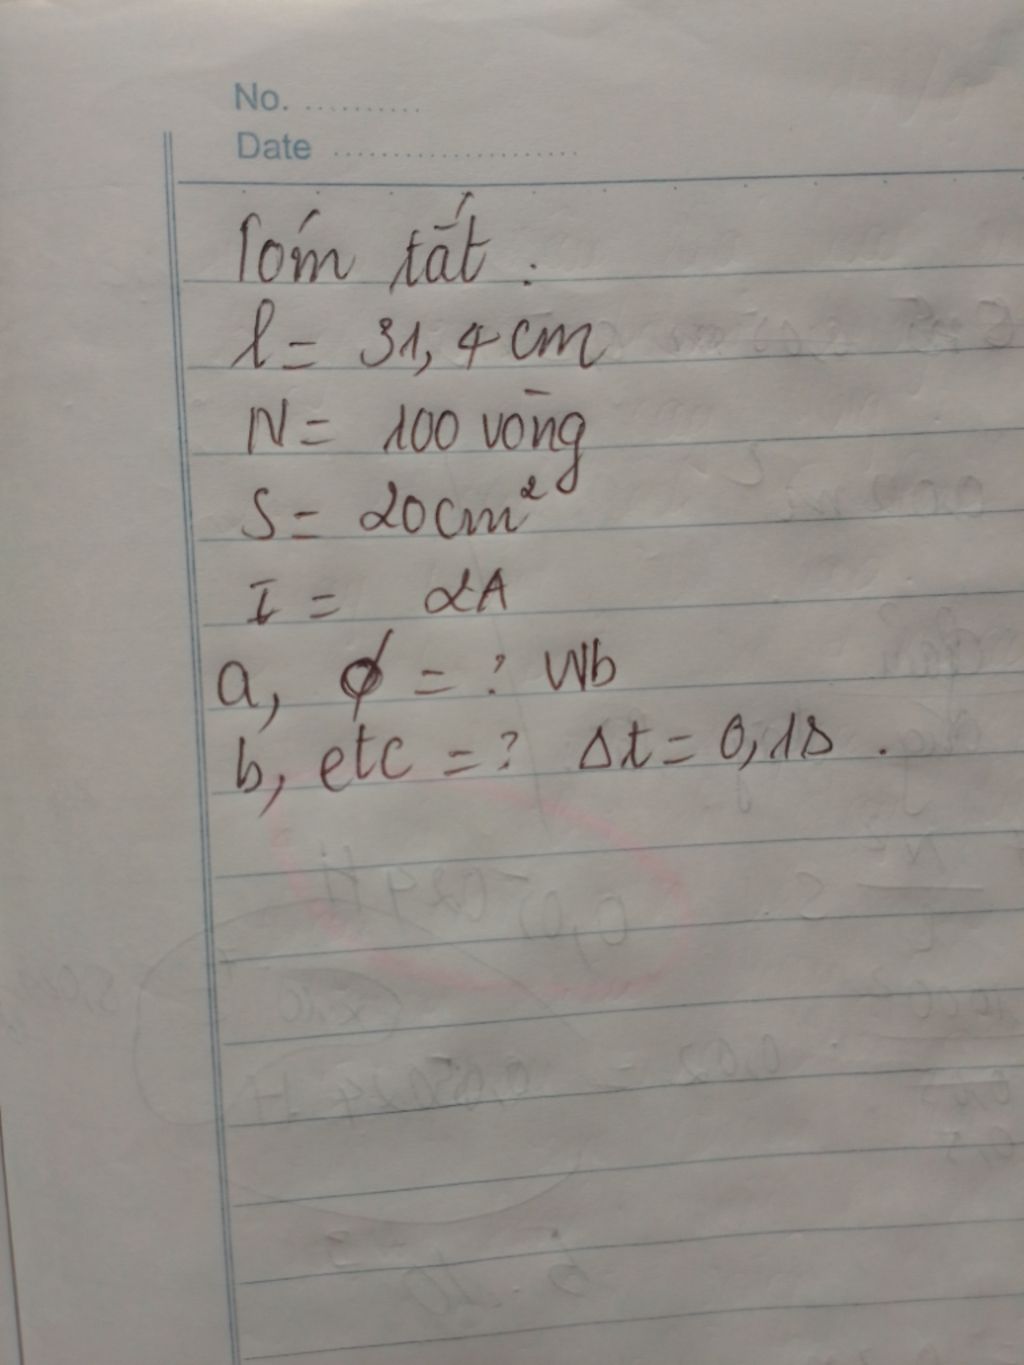 No. ..........
Date .....................
Tóm tắt :
l = 31,4 cm
N = 100 vòng
S = 20 cm²
I = 2A
a, ϕ = ? Wb
b, etc = ? Δt = 0,1s .